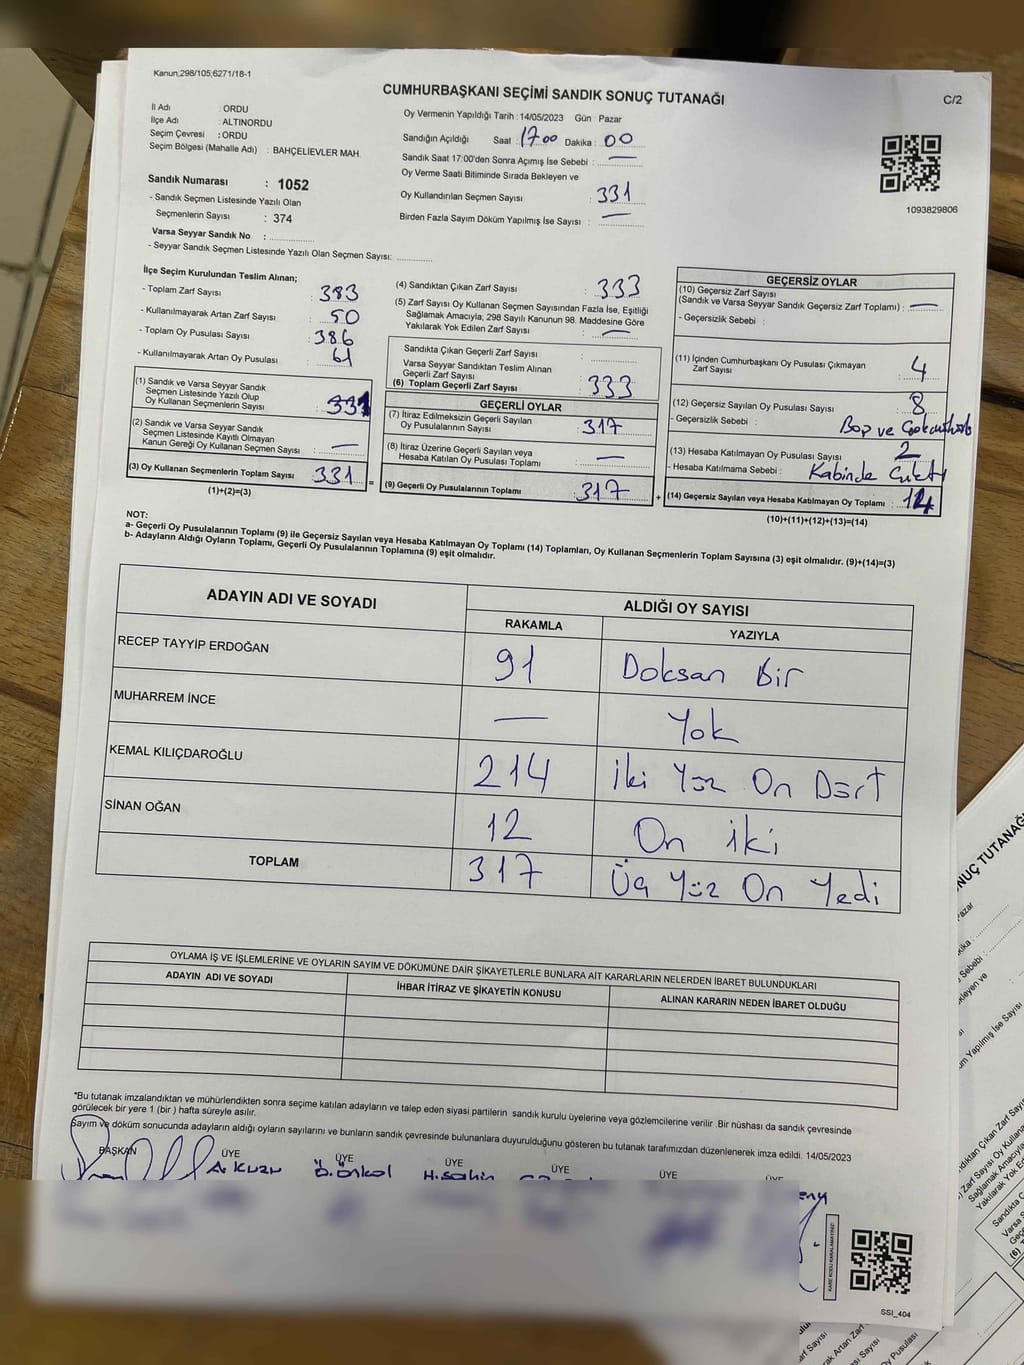 Kanun;298/105;6271/18-1
CUMHURBAŞKANI SEÇİMİ SANDIK SONUÇ TUTANAĞI
C/2
İl Adı : ORDU
İlçe Adı : ALTINORDU
Seçim Çevresi : ORDU
Seçim Bölgesi (Mahalle Adı) : BAHÇELİEVLER MAH.
Sandık Numarası : 1052
- Sandık Seçmen Listesinde Yazılı Olan
Seçmenlerin Sayısı : 374
Varsa Seyyar Sandık No :
- Seyyar Sandık Seçmen Listesinde Yazılı Olan Seçmen Sayısı:
Oy Vermenin Yapıldığı Tarih : 14/05/2023 Gün : Pazar
Sandığın Açıldığı Saat : 17 00 Dakika : 00
Sandık Saat 17:00'den Sonra Açımış İse Sebebi : —
Oy Verme Saati Bitiminde Sırada Bekleyen ve
Oy Kullandırılan Seçmen Sayısı : 331
Birden Fazla Sayım Döküm Yapılmış İse Sayısı : —
1093829806
İlçe Seçim Kurulundan Teslim Alınan;
- Toplam Zarf Sayısı : 383
- Kullanılmayarak Artan Zarf Sayısı : 50
- Toplam Oy Pusulası Sayısı : 386
- Kullanılmayarak Artan Oy Pusulası : 61
(1) Sandık ve Varsa Seyyar Sandık
Seçmen Listesinde Yazılı Olup
Oy Kullanan Seçmenlerin Sayısı : 331
(2) Sandık ve Varsa Seyyar Sandık
Seçmen Listesinde Kayıtlı Olmayan
Kanun Gereği Oy Kullanan Seçmen Sayısı : —
(3) Oy Kullanan Seçmenlerin Toplam Sayısı : 331 =
(1)+(2)=(3)
(4) Sandıktan Çıkan Zarf Sayısı : 333
(5) Zarf Sayısı Oy Kullanan Seçmen Sayısından Fazla İse, Eşitliği
Sağlamak Amacıyla; 298 Sayılı Kanunun 98. Maddesine Göre
Yakılarak Yok Edilen Zarf Sayısı : —
Sandıkta Çıkan Geçerli Zarf Sayısı :
Varsa Seyyar Sandıktan Teslim Alınan
Geçerli Zarf Sayısı :
(6) Toplam Geçerli Zarf Sayısı : 333
GEÇERLİ OYLAR
(7) İtiraz Edilmeksizin Geçerli Sayılan
Oy Pusulalarının Sayısı : 317
(8) İtiraz Üzerine Geçerli Sayılan veya
Hesaba Katılan Oy Pusulası Toplamı : —
(9) Geçerli Oy Pusulalarının Toplamı : 317 +
GEÇERSİZ OYLAR
(10) Geçersiz Zarf Sayısı
(Sandık ve Varsa Seyyar Sandık Geçersiz Zarf Toplamı) : —
- Geçersizlik Sebebi :
(11) İçinden Cumhurbaşkanı Oy Pusulası Çıkmayan
Zarf Sayısı : 4
(12) Geçersiz Sayılan Oy Pusulası Sayısı : 8
- Geçersizlik Sebebi : Boş ve
(13) Hesaba Katılmayan Oy Pusulası Sayısı : 2
- Hesaba Katılmama Sebebi : Kabinde
(14) Geçersiz Sayılan veya Hesaba Katılmayan Oy Toplamı : 14
(10)+(11)+(12)+(13)=(14)
NOT:
a- Geçerli Oy Pusulalarının Toplamı (9) ile Geçersiz Sayılan veya Hesaba Katılmayan Oy Toplamı (14) Toplamları, Oy Kullanan Seçmenlerin Toplam Sayısına (3) eşit olmalıdır. (9)+(14)=(3)
b- Adayların Aldığı Oyların Toplamı, Geçerli Oy Pusulalarının Toplamına (9) eşit olmalıdır.
ADAYIN ADI VE SOYADI
ALDIĞI OY SAYISI
RAKAMLA YAZIYLA
RECEP TAYYİP ERDOĞAN 91 Doksan Bir
MUHARREM İNCE — Yok
KEMAL KILIÇDAROĞLU 214 İki Yüz On Dört
SİNAN OĞAN 12 On iki
TOPLAM 317 Üç Yüz On Yedi
OYLAMA İŞ VE İŞLEMLERİNE VE OYLARIN SAYIM VE DÖKÜMÜNE DAİR ŞİKAYETLERLE BUNLARA AİT KARARLARIN NELERDEN İBARET BULUNDUKLARI
ADAYIN ADI VE SOYADI İHBAR İTİRAZ VE ŞİKAYETİN KONUSU ALINAN KARARIN NEDEN İBARET OLDUĞU
*Bu tutanak imzalandıktan ve mühürlendikten sonra seçime katılan adayların ve talep eden siyasi partilerin sandık kurulu üyelerine veya gözlemcilerine verilir .Bir nüshası da sandık çevresinde
görülecek bir yere 1 (bir ) hafta süreyle asılır.
Sayım ve döküm sonucunda adayların aldığı oyların sayılarını ve bunların sandık çevresinde bulunanlara duyurulduğunu gösteren bu tutanak tarafımızdan düzenlenerek imza edildi. 14/05/2023
BAŞKAN ÜYE ÜYE ÜYE ÜYE ÜYE ÜYE
A. Kuzu Ö. Önkol H. Şahin
KARE KODU KARALAMAYINIZ!
SSI_404
NUÇ TUTANAĞI